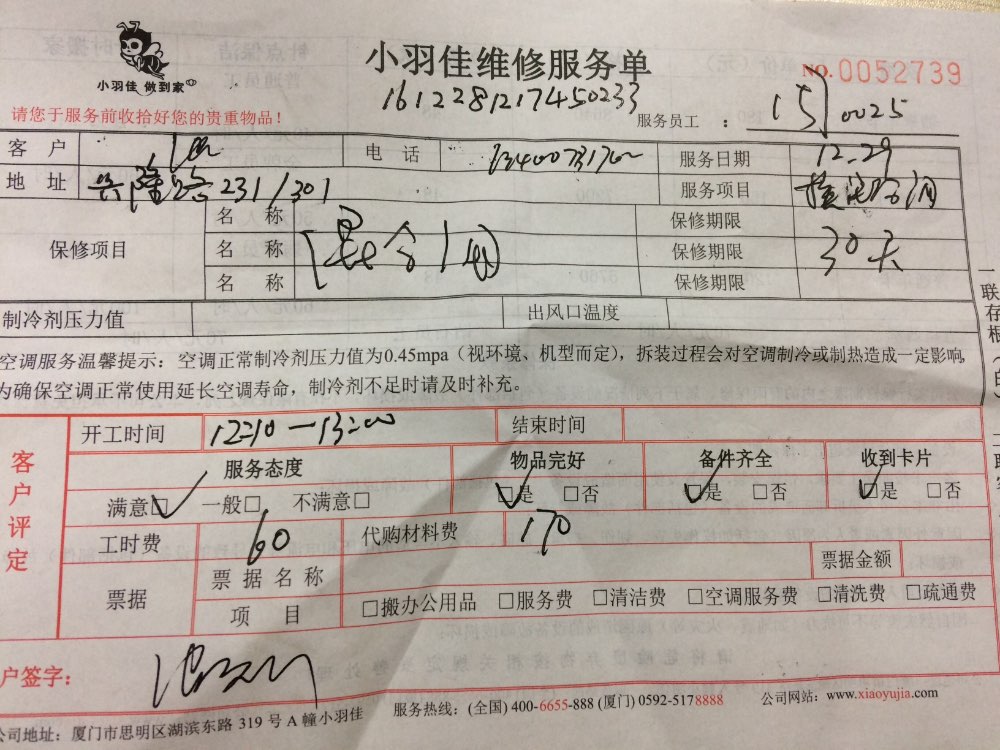 小羽佳 做到家
小羽佳维修服务单
NO.0052739
1612281217450233
请您于服务前收拾好您的贵重物品!
服务员工 : 0025
客户 电话 服务日期 12.29
地址 兴隆路231/301 服务项目
保修项目 名称 保修期限
名称 保修期限 30天
名称 保修期限
制冷剂压力值 出风口温度
空调服务温馨提示：空调正常制冷剂压力值为0.45mpa（视环境、机型而定），拆装过程会对空调制冷或制热造成一定影响,
为确保空调正常使用延长空调寿命，制冷剂不足时请及时补充。
一联存根
客户评定
开工时间 12:10—13:00 结束时间
服务态度 物品完好 备件齐全 收到卡片
满意☑ 一般□ 不满意□ ☑是 □否 ☑是 □否 ☑是 □否
工时费 60 代购材料费 170
票据 票据名称 票据金额
项目 □搬办公用品 □服务费 □清洁费 □空调服务费 □清洗费 □疏通费
户签字：
公司地址: 厦门市思明区湖滨东路 319 号 A 幢小羽佳
服务热线：(全国) 400-6655-888 (厦门) 0592-5178888
公司网站：www.xiaoyujia.com